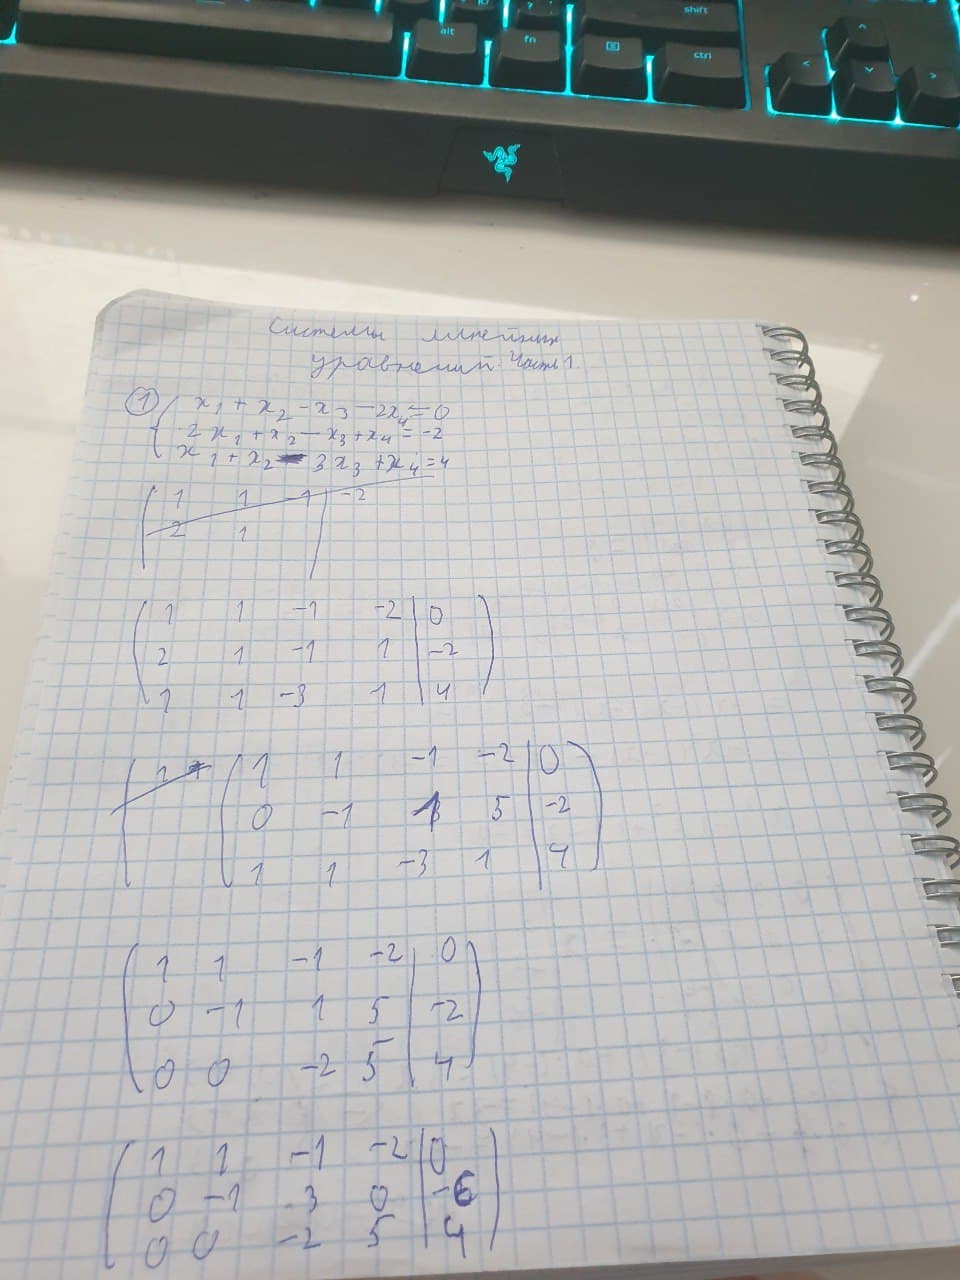 shift
alt fn ctrl
< ^ v >
Системы линейных
уравнений. Часть 1.
① x₁ + x₂ - x₃ - 2x₄ = 0
2x₁ + x₂ - x₃ + x₄ = -2
x₁ + x₂ - 3x₃ + x₄ = 4
1 1 -1 | -2
2 1
1 1 -1 -2 | 0
2 1 -1 1 | -2
1 1 -3 1 | 4
1 1 -1 -2 | 0
0 -1 1 5 | -2
1 1 -3 1 | 4
1 1 -1 -2 | 0
0 -1 1 5 | -2
0 0 -2 5 | 4
1 1 -1 -2 | 0
0 -1 3 0 | -6
0 0 -2 5 | 4